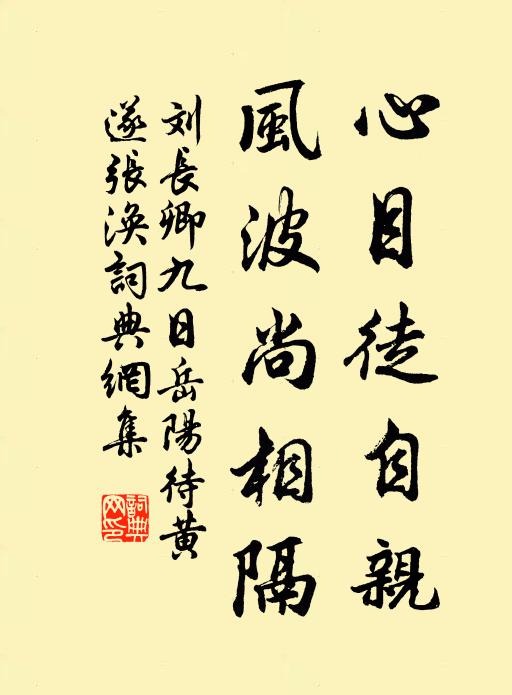 心目徒自親
風波尚相隔
刘長卿九日岳陽待黄
遂張渙詞典網集
詞典網印